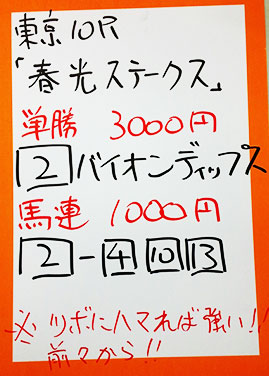 東京10R
「春光ステークス」
単勝 3000円
2 バイオンディップス
馬連 1000円
2-4 10 13
※ツボにハマれば強い!!
前々から!!